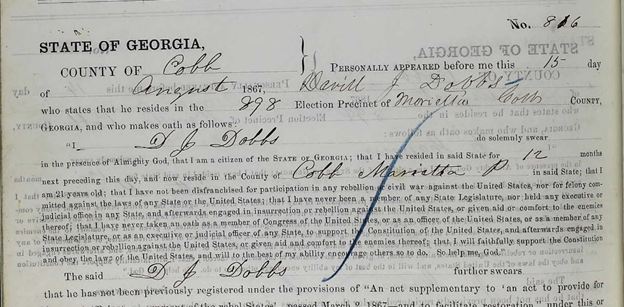 No. 816
STATE OF GEORGIA,
COUNTY OF Cobb
PERSONALLY APPEARED before me this 15 day
of August 1867, David J Dobbs
who states that he resides in the 898 Election Precinct of Marietta Cobb COUNTY,
GEORGIA, and makes oath as follows:
"I D J Dobbs do solemnly swear
in the presence of Almighty God, that I am a citizen of the STATE OF GEORGIA; that I have resided in said State for 12 months
next preceding this day, and now reside in the County of Cobb Marietta P in said State; that I
am 21 years old; that I have not been disfranchised for participation in any rebellion or civil war against the United States, nor for felony com-
mitted against the laws of any State or the United States; that I have never been a member of any State Legislature, nor held any executive or
judicial office in any State, and afterwards engaged in insurrection or rebellion against the United States, or given aid or comfort to the enemies
thereof; that I have never taken an oath as a member of Congress of the United States, or as an officer of the United States, or as a member of any
State Legislature, or as an executive or judicial officer of any State, to support the Constitution of the United States, and afterwards engaged in
insurrection or rebellion against the United States, or given aid or comfort to the enemies thereof; that I will faithfully support the Constitution
and obey the laws of the United States, and will to the best of my ability encourage others so to do. So help me, God."
The said D J Dobbs further swears
that he has not been previously registered under the provisions of "An act supplementary to 'an act to provide for
passed March 2, 1867—and to facilitate restoration,